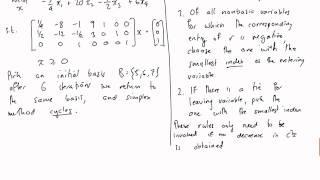 min -3/4 x₄ + 20x₅ - 1/2 x₆ + 6x₇
s.t. [1/4 -8 -1 9 1 0 0
1/2 -12 -1/2 3 0 1 0
0 0 1 0 0 0 1] x = [0
0
1]
x ≥ 0
Pick an initial basis B = {5,6,7}
after 6 iterations we return to
the same basis, and simplex
method cycles.
1. Of all nonbasic variables
for which the corresponding
entry of r is negative,
choose the one with the
smallest index as the entering
variable
2. If there is a tie for
leaving variable, pick the
one with the smallest index
These rules only need to be
invoked if no decrease in cᵀx
is obtained